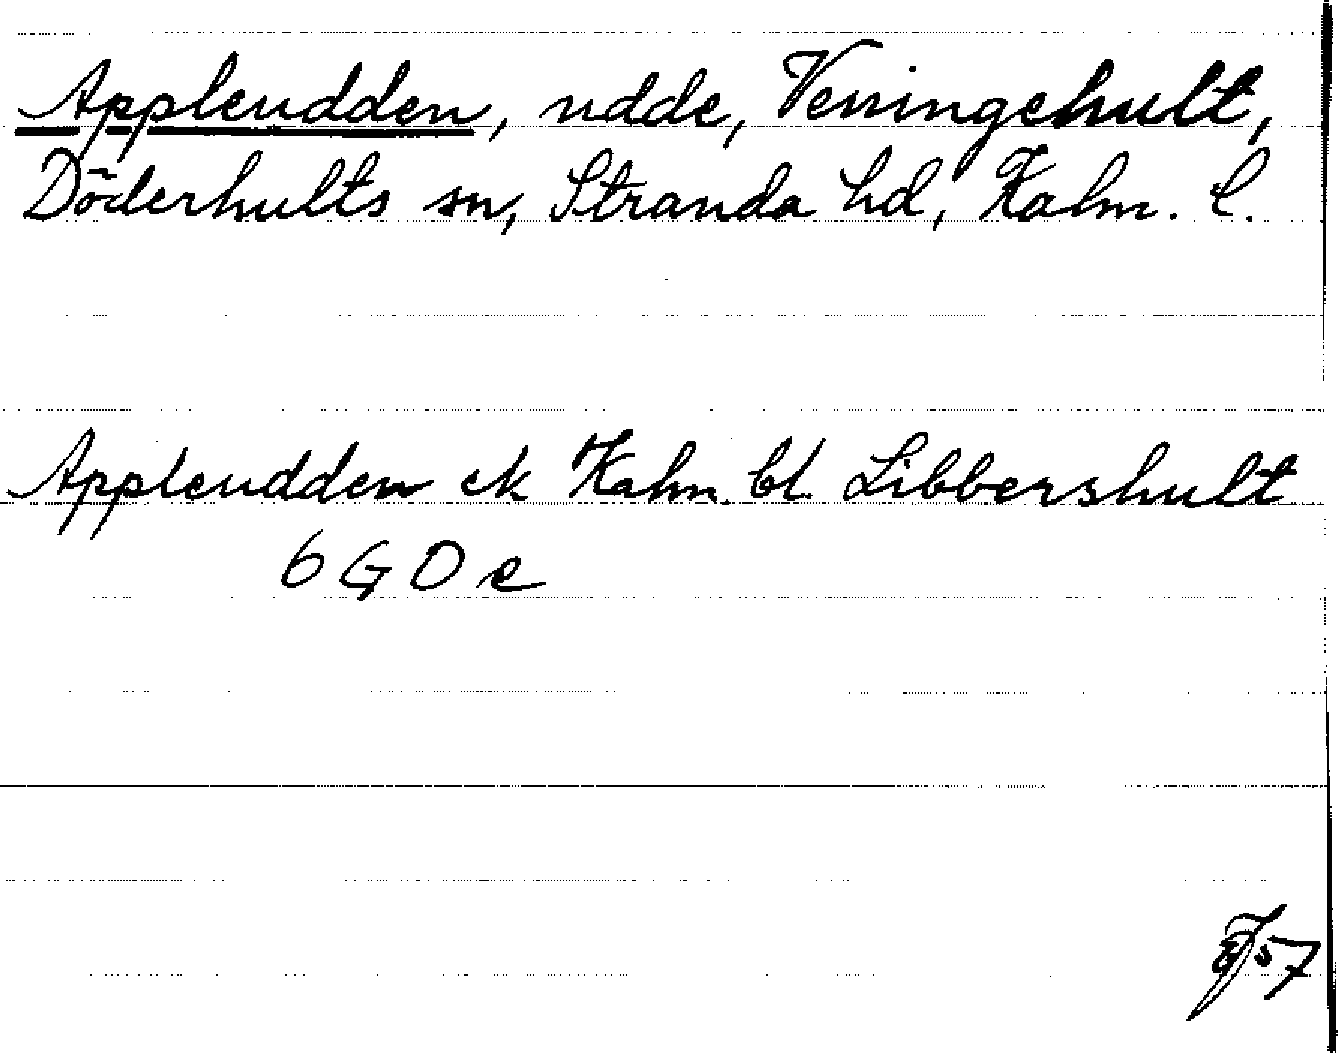 Appleudden, udde, Verringehult,
Döderhults sn, Stranda hd, Kalm. l.
Appleudden ek Kalm. bl. Libbershult
6 G O e
57